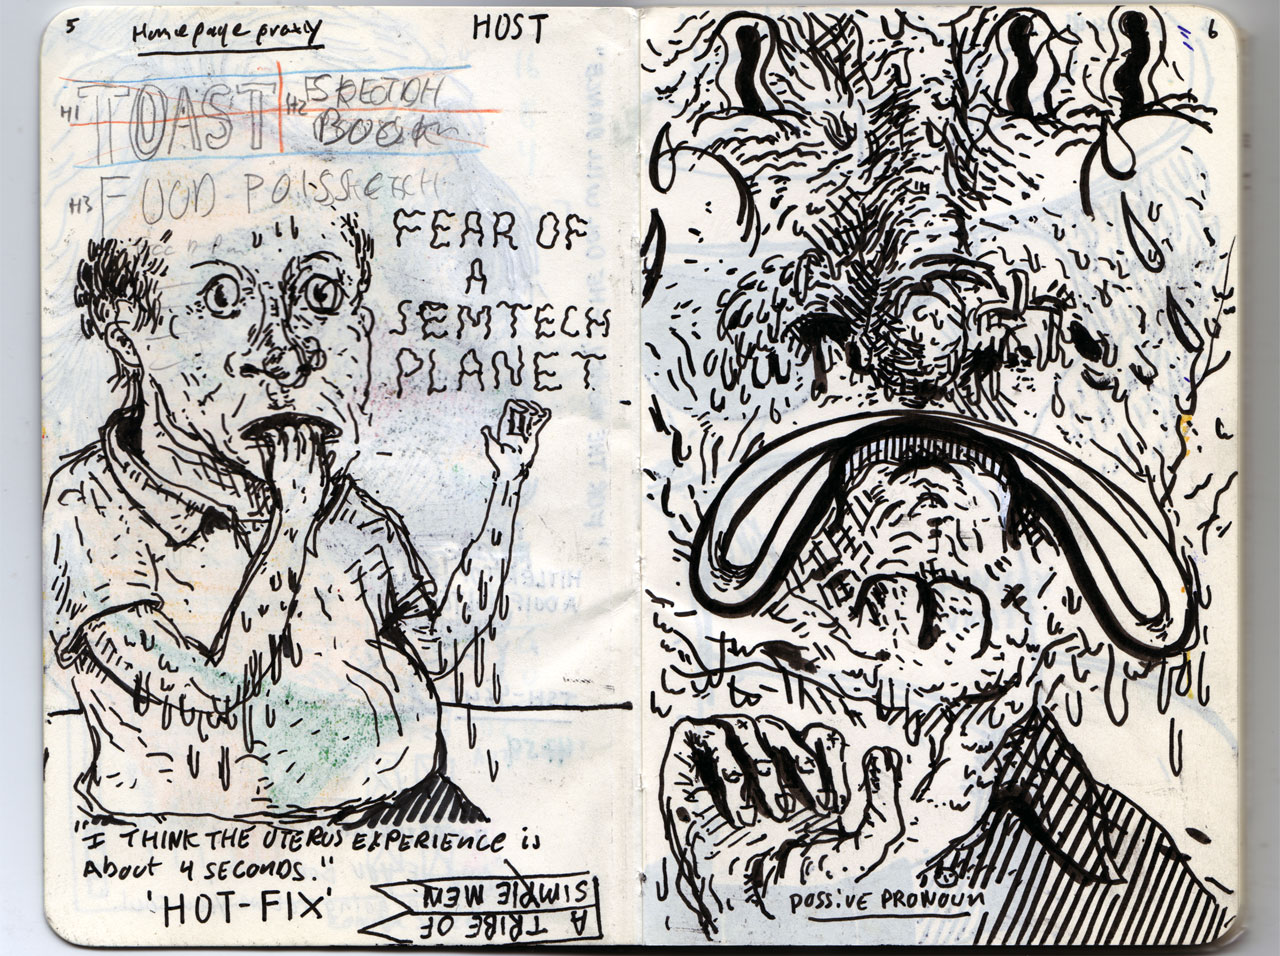 5
Homepage proxy
HOST
H1 TOAST
H2 SKETCH
BOOK
H3 FOOD POISSKETCH
FEAR OF
A
SEMTECH
PLANET
"I THINK THE UTERUS EXPERIENCE is
About 4 SECONDS."
'HOT-FIX'
A TRIBE OF
SIMPLE MEN
6
POSSIVE PRONOUN